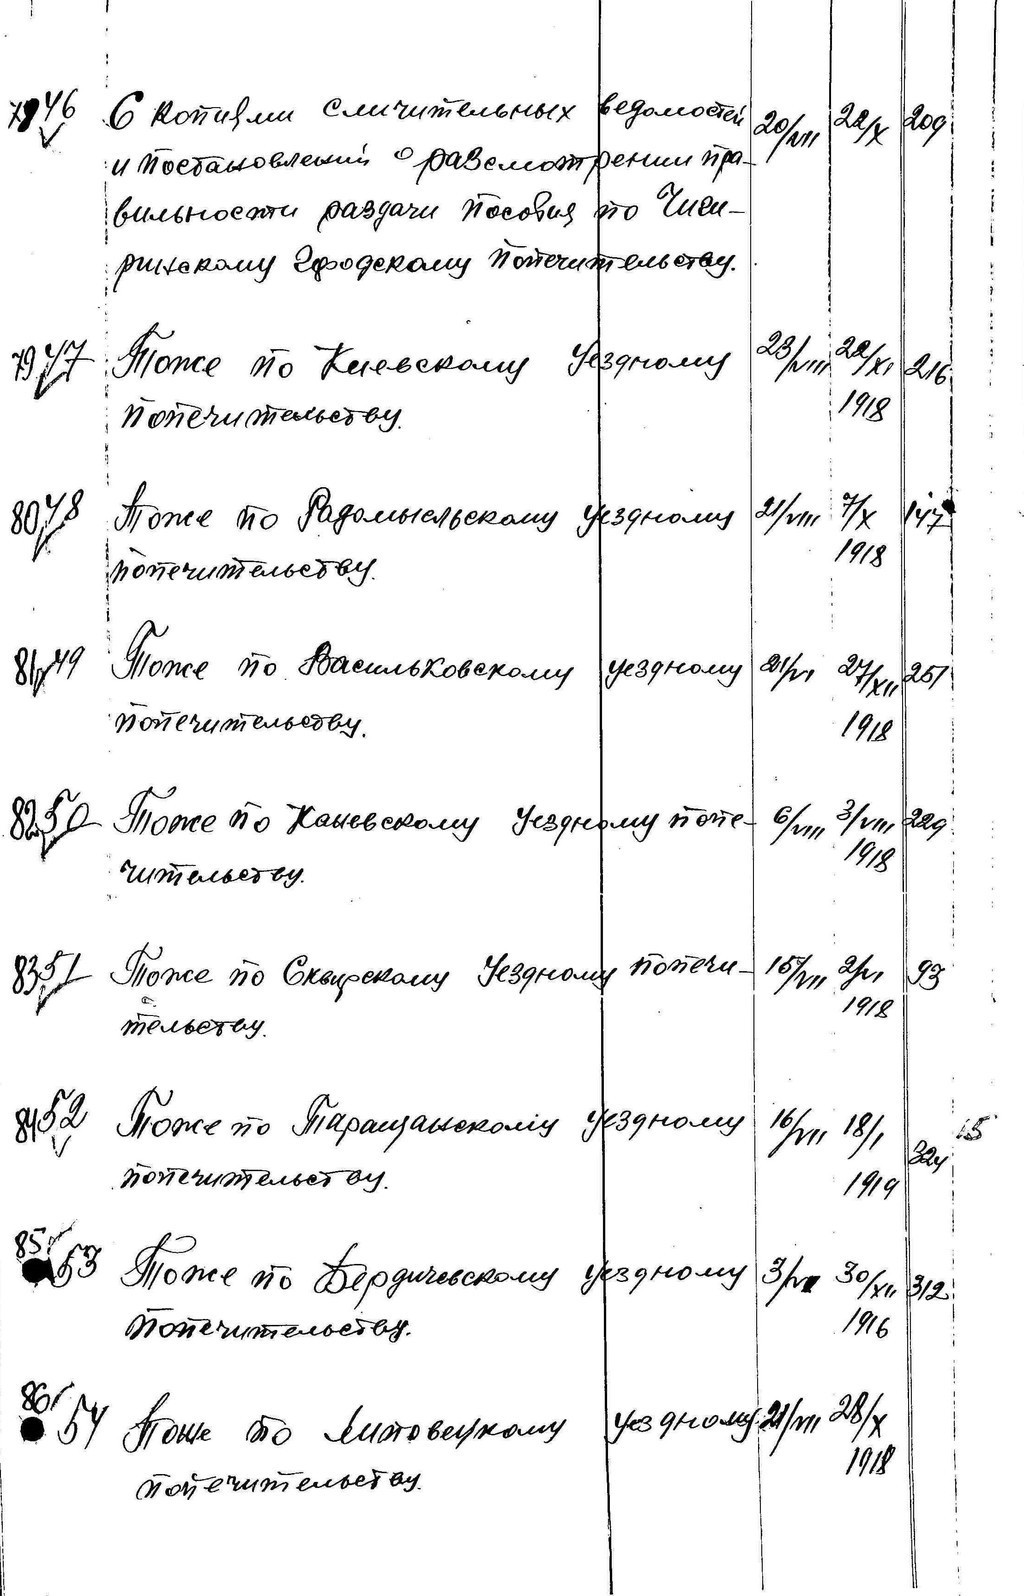 7846 С копиями сличительных ведомостей 20/VII 22/X 209
и постановлений о разсмотрении пра-
вильности раздачи пособия по Чиги-
ринскому городскому попечительству.
79 47 Тоже по Киевскому уездному 23/VIII 22/XI 216
попечительству. 1918
80 48 Тоже по Радомысльскому уездному 21/VIII 7/X 147
попечительству. 1918
81 49 Тоже по Васильковскому уездному 21/VI 27/XII 251
попечительству. 1918
82 50 Тоже по Каневскому уездному попе- 6/VIII 3/VIII 229
чительству. 1918
83 51 Тоже по Сквирскому уездному попечи- 15/VII 2/VI 93
тельству. 1918
84 52 Тоже по Таращанскому уездному 16/VII 18/I 324 15
попечительству. 1919
85 53 Тоже по Бердичевскому уездному 30/XII 312
попечительству. 1916
86 54 Тоже по Липовецкому уездному 21/VII 28/X
попечительству. 1918